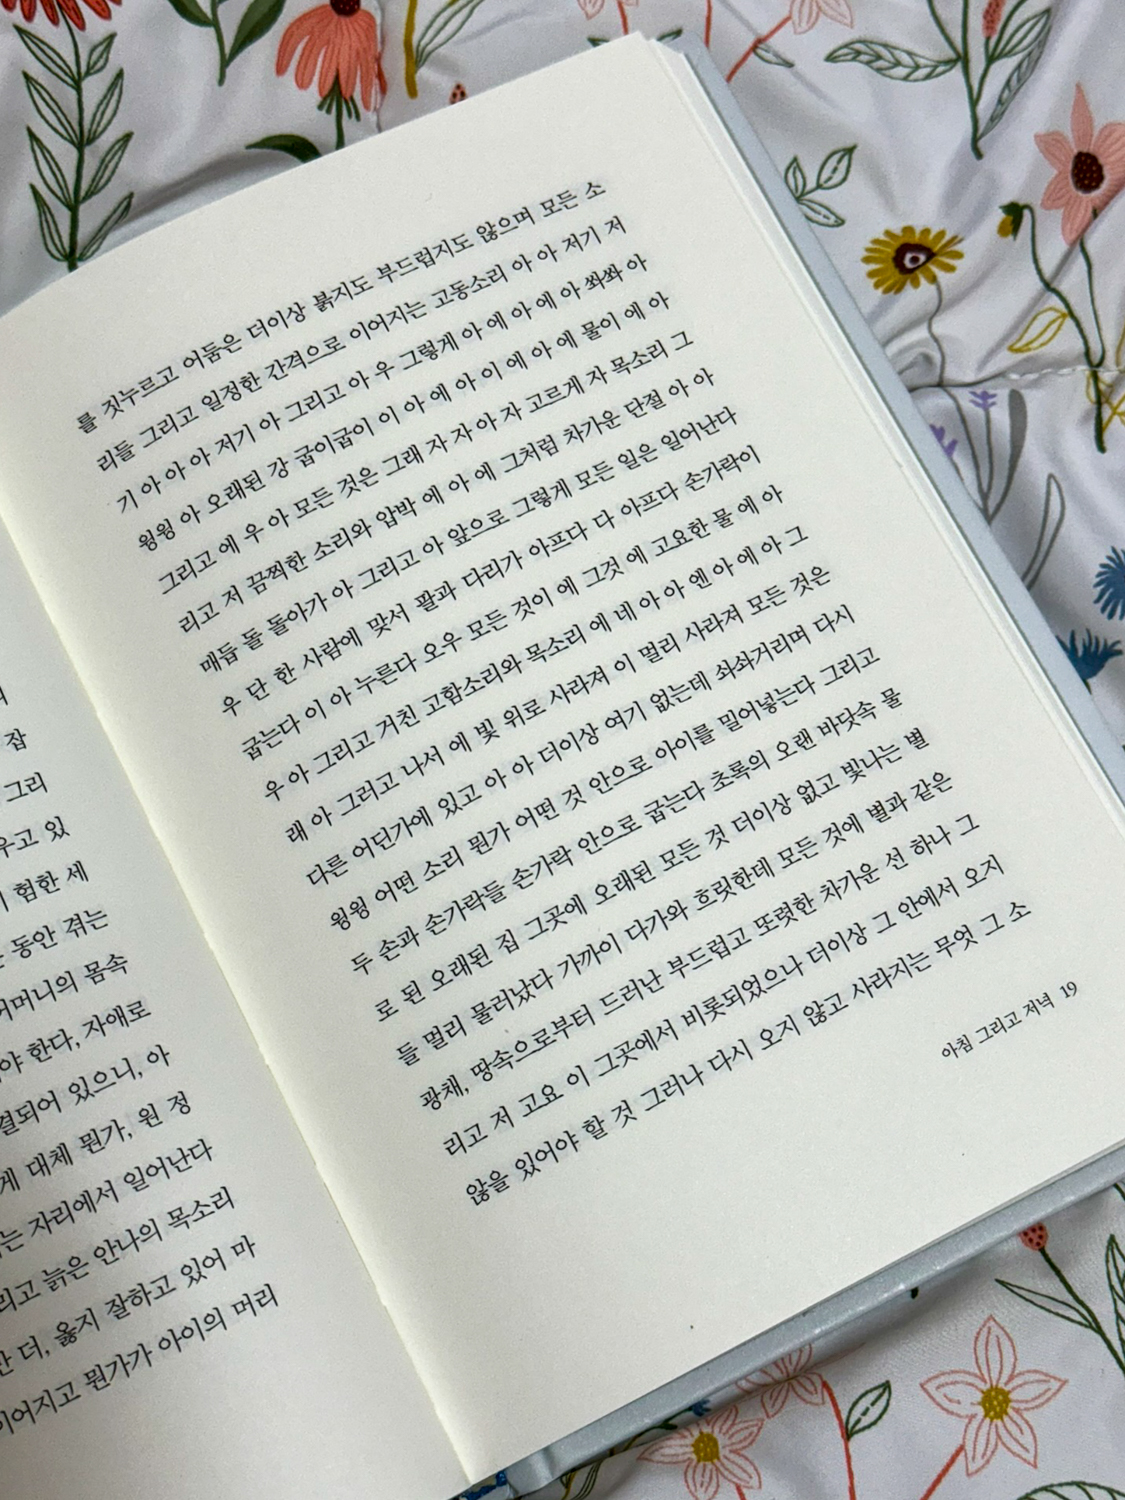 잡
그리
우고 있
험한 세
동안 겪는
어머니의 몸속
야 한다, 자애로
결되어 있으니, 아
게 대체 뭔가, 원 정
는 자리에서 일어난다
리고 늙은 안나의 목소리
만 더, 옳지 잘하고 있어 마
이어지고 뭔가가 아이의 머리
를 짓누르고 어둠은 더이상 붉지도 부드럽지도 않으며 모든 소
리들 그리고 일정한 간격으로 이어지는 고동소리 아 아 저기 저
기 아 아 아 저기 아 그리고 아 우 그렇게 아 에 아 에 아 쏴쏴 아
윙윙 아 오래된 강 굽이굽이 이 아 에 아 이 에 아 에 물이 에 아
그리고 에 우 아 모든 것은 그래 자 자 아 자 고르게 자 목소리 그
리고 저 끔찍한 소리와 압박 에 아 에 그처럼 차가운 단절 아 아
매듭 돌 돌아가 아 그리고 아 앞으로 그렇게 모든 일은 일어난다
우 단 한 사람에 맞서 팔과 다리가 아프다 다 아프다 손가락이
굽는다 이 아 누른다 오우 모든 것이 에 그것 에 고요한 물 에 아
우 아 그리고 거친 고함소리와 목소리 에 네 아 아 엔 아 에 아 그
래 아 그러고 나서 에 빛 위로 사라져 이 멀리 사라져 모든 것은
다른 어딘가에 있고 아 아 더이상 여기 없는데 쇠쇠거리며 다시
윙윙 어떤 소리 뭔가 어떤 것 안으로 아이를 밀어넣는다 그리고
두 손과 손가락들 손가락 안으로 굽는다 초록의 오랜 바닷속 물
로 된 오래된 집 그곳에 오래된 모든 것 더이상 없고 빛나는 별
들 멀리 물러났다 가까이 다가와 흐릿한데 모든 것에 별과 같은
광채, 땅속으로부터 드러난 부드럽고 또렷한 차가운 선 하나 그
리고 저 고요 이 그곳에서 비롯되었으나 더이상 그 안에서 오지
않을 있어야 할 것 그러나 다시 오지 않고 사라지는 무엇 그 소
아침 그리고 저녁 19